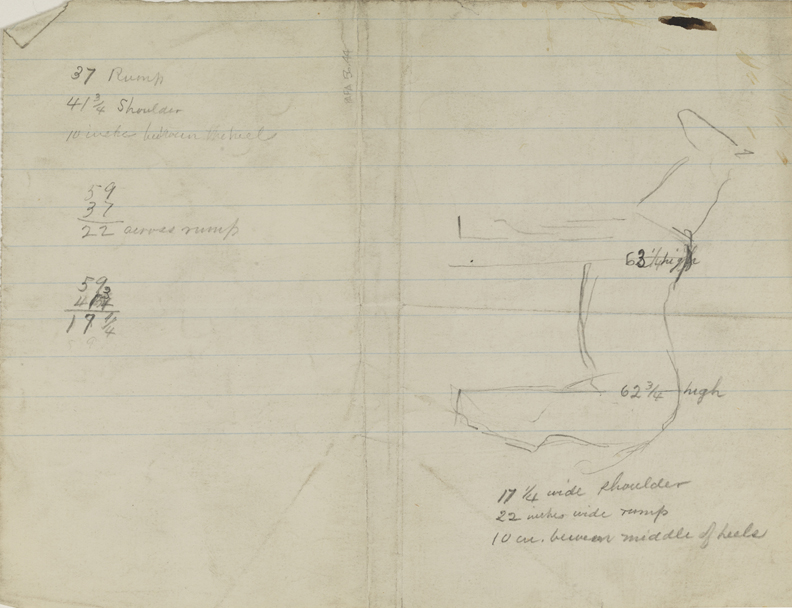 37 Rump
41 3/4 Shoulder
10 inches between heels
59
37
22 across rump
59
41 3/4
17 1/4
63 1/4 high
62 3/4 high
17 1/4 wide shoulder
22 inches wide rump
10 in. between middle of heels